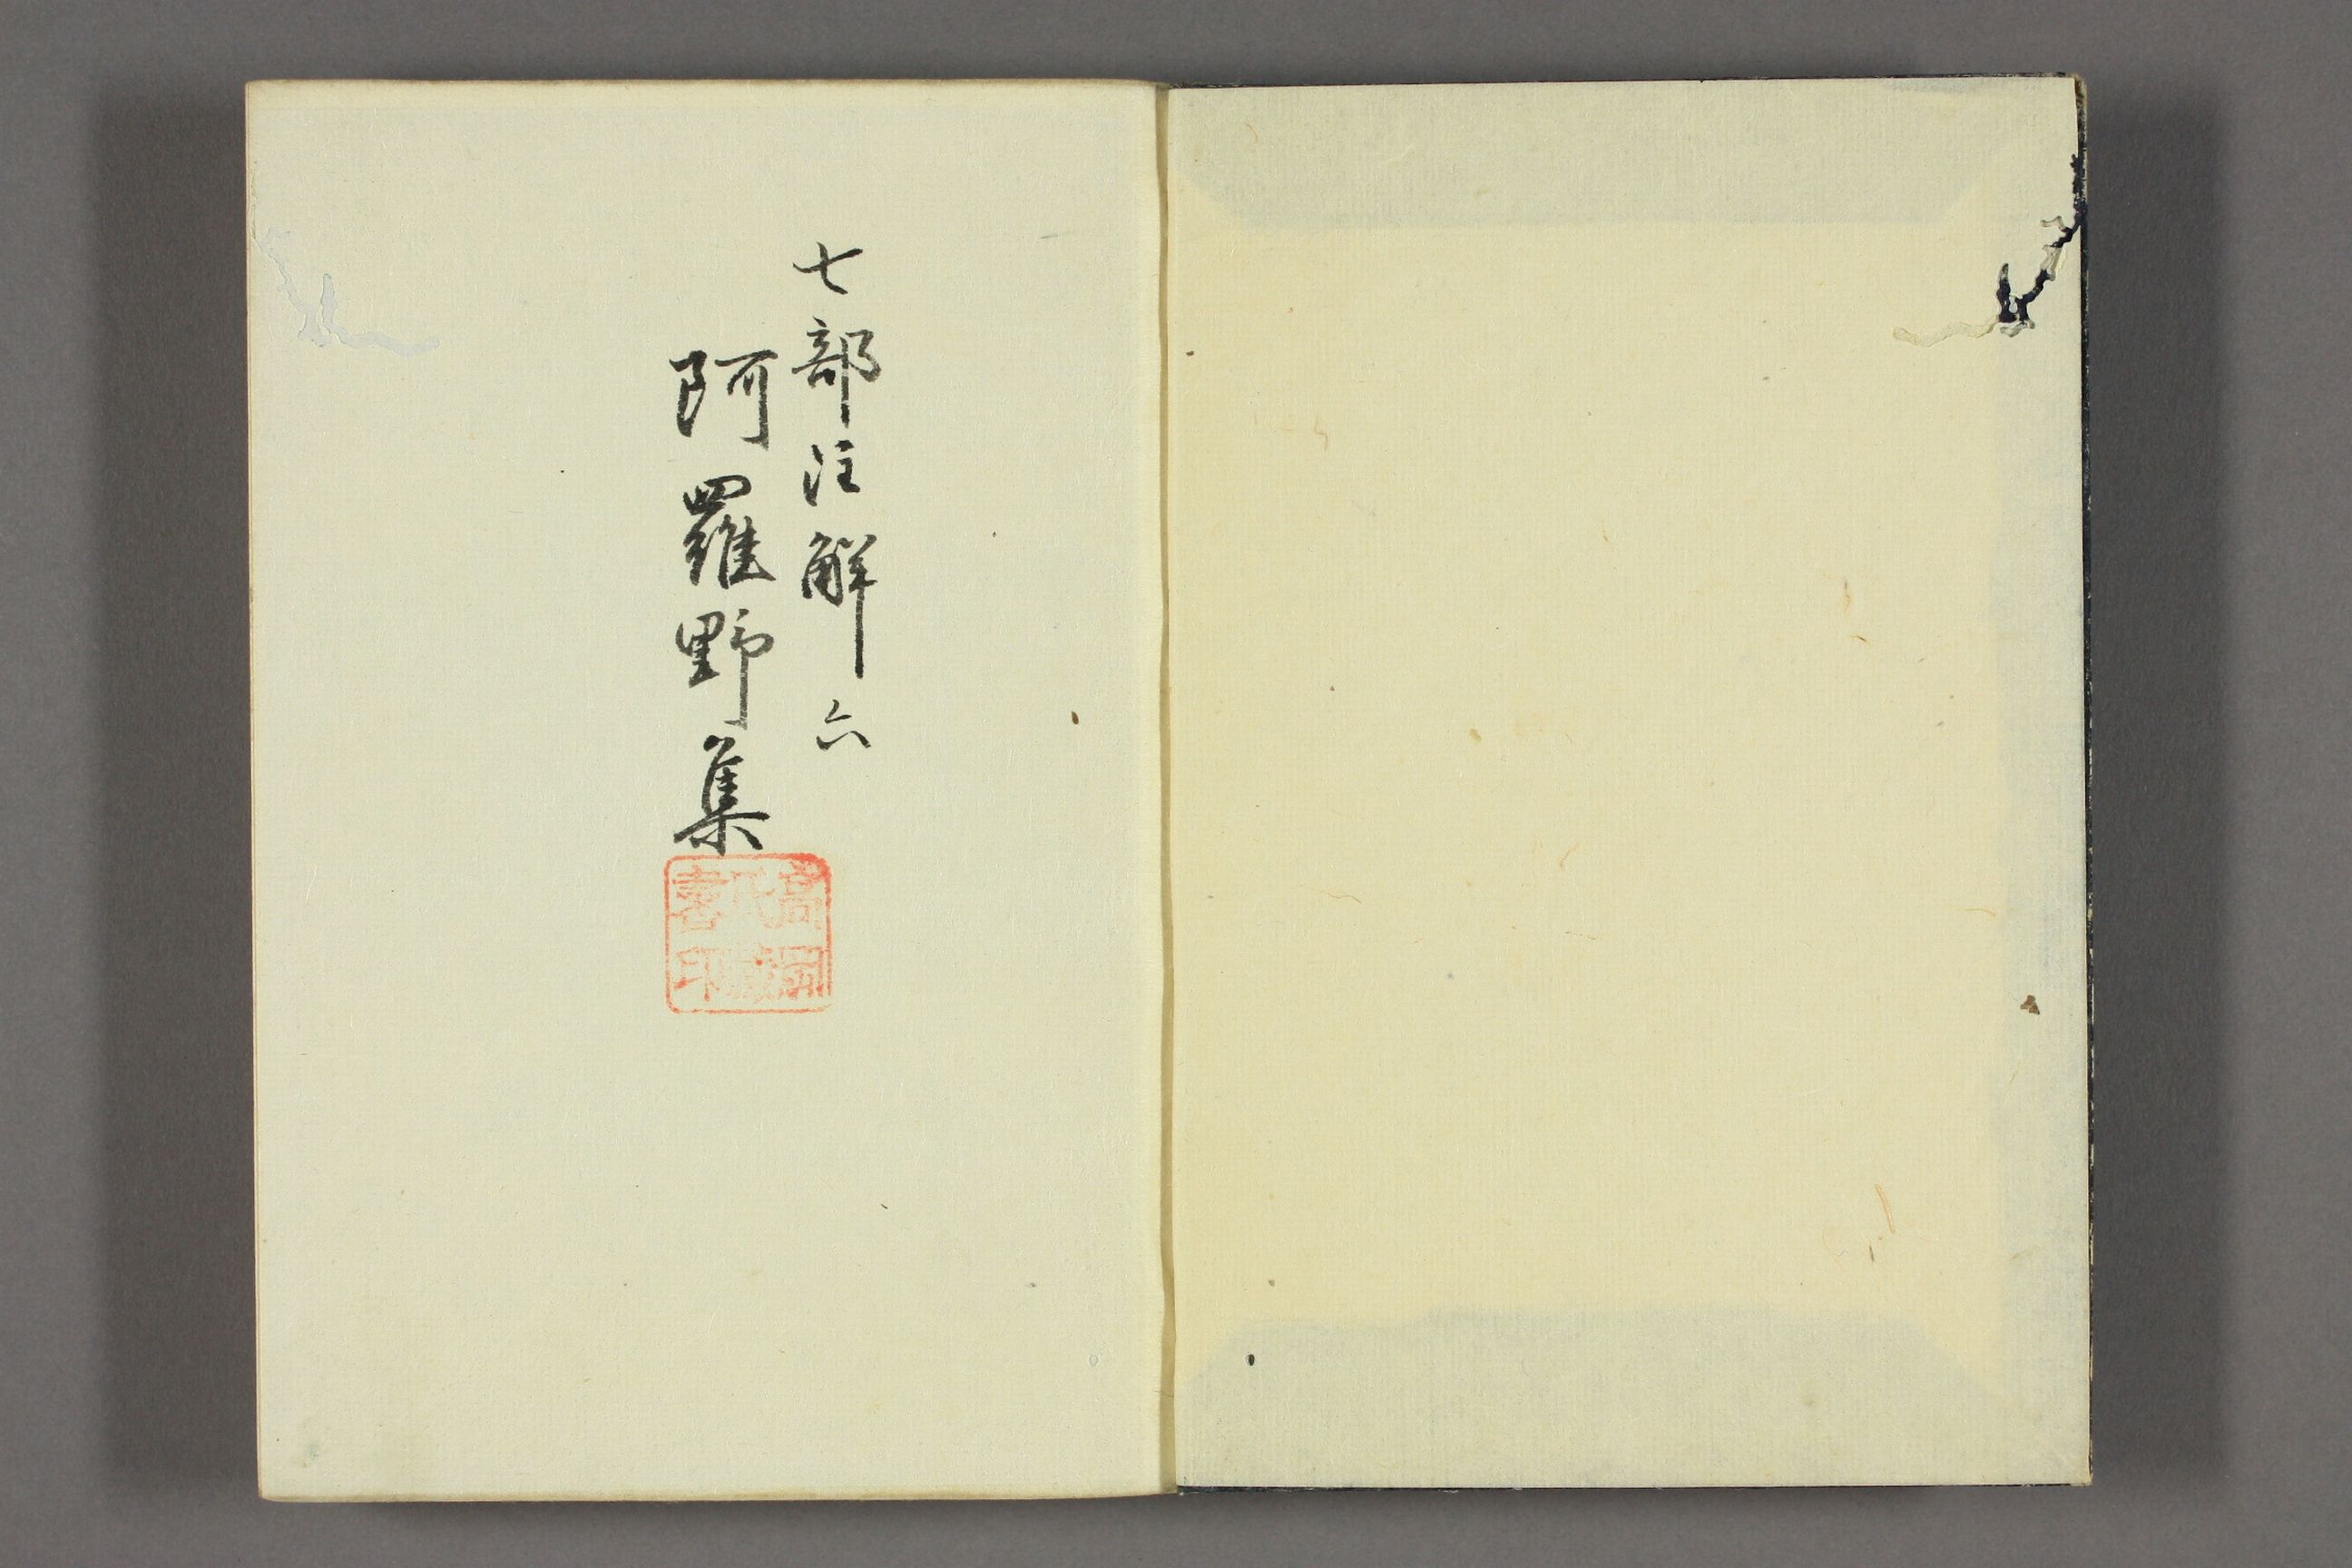 七部注解 六
阿羅野集
高洲
氏藏
書印